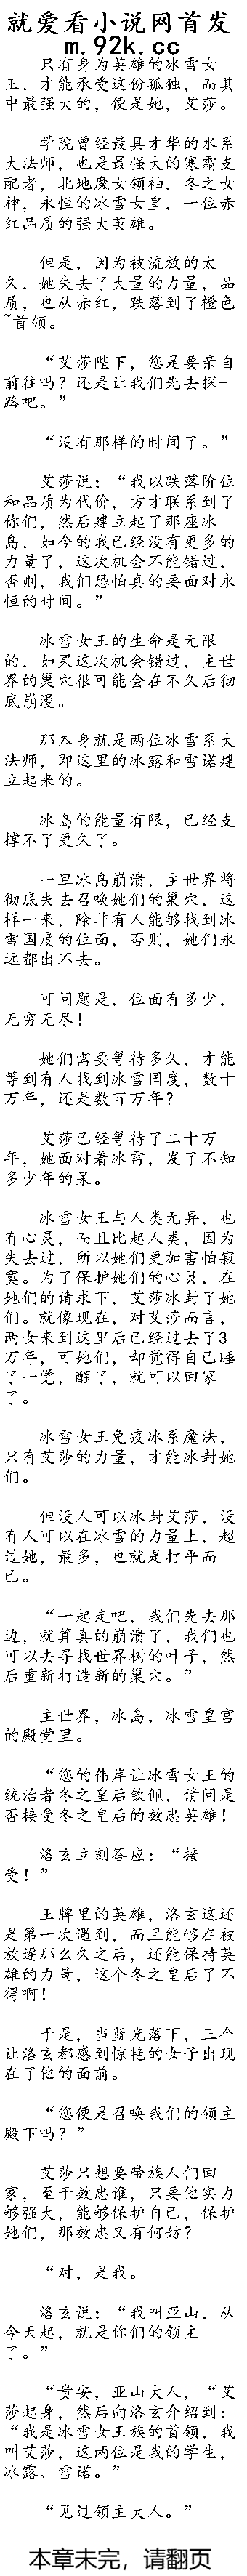 就爱看小说网首发
m.92k.cc
只有身为英雄的冰雪女
王，才能承受这份孤独，而其
中最强大的，便是她，艾莎。
学院曾经最具才华的水系
大法师，也是最强大的寒霜支
配者，北地魔女领袖，冬之女
神，永恒的冰雪女皇，一位赤
红品质的强大英雄。
但是，因为被流放的太
久，她失去了大量的力量，品
质，也从赤红，跌落到了橙色
~首领。
“艾莎陛下，您是要亲自
前往吗？还是让我们先去探-
路吧。”
“没有那样的时间了。”
艾莎说；“我以跌落阶位
和品质为代价，方才联系到了
你们，然后建立起了那座冰
岛，如今的我已经没有更多的
力量了，这次机会不能错过，
否则，我们恐怕真的要面对永
恒的时间。”
冰雪女王的生命是无限
的，如果这次机会错过，主世
界的巢穴很可能会在不久后彻
底崩漫。
那本身就是两位冰雪系大
法师，即这里的冰露和雪诺建
立起来的。
冰岛的能量有限，已经支
撑不了更久了。
一旦冰岛崩溃，主世界将
彻底失去召唤她们的巢穴，这
样一来，除非有人能够找到冰
雪国度的位面，否则，她们永
远都出不去。
可问题是，位面有多少，
无穷无尽！
她们需要等待多久，才能
等到有人找到冰雪国度，数十
万年，还是数百万年？
艾莎已经等待了二十万
年，她面对着冰雷，发了不知
多少年的呆。
冰雪女王与人类无异，也
有心灵，而且比起人类，因为
失去过，所以她们更加害怕寂
寞。为了保护她们的心灵，在
她们的请求下，艾莎冰封了她
们。就像现在，对艾莎而言，
两女来到这里后已经过去了3
万年，可她们，却觉得自己睡
了一觉，醒了，就可以回冢
了。
冰雪女王免疫冰系魔法，
只有艾莎的力量，才能冰封她
们。
但没人可以冰封艾莎，没
有人可以在冰雪的力量上，超
过她，最多，也就是打平而
已。
“一起走吧，我们先去那
边，就算真的崩溃了，我们也
可以去寻找世界树的叶子，然
后重新打造新的巢穴。”
主世界，冰岛，冰雪皇宫
的殿堂里。
“您的伟岸让冰雪女王的
统治者冬之皇后钦佩，请问是
否接受冬之皇后的效忠英雄！
洛玄立刻答应：“接
受！”
王牌里的英雄，洛玄这还
是第一次遇到，而且能够在被
放逐那么久之后，还能保持英
雄的力量，这个冬之皇后了不
得啊！
于是，当蓝光落下，三个
让洛玄都感到惊艳的女子出现
在了他的面前。
“您便是召唤我们的领主
殿下吗？”
艾莎只想要带族人们回
家，至于效忠谁，只要他实力
够强大，能够保护自己，保护
她们，那效忠又有何妨？
“对，是我。
洛玄说：“我叫亚山，从
今天起，就是你们的领主
了。”
“贵安，亚山大人，“艾
莎起身，然后向洛玄介绍到：
“我是冰雪女王族的首领，我
叫艾莎，这两位是我的学生，
冰露、雪诺。”
“见过领主大人。”
本章未完，请翻页